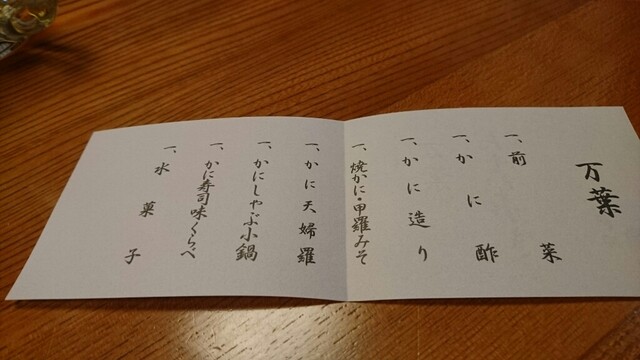 万葉
一、前菜
一、かに酢
一、かに造り
一、焼かに・甲羅みそ
一、かに天婦羅
一、かにしゃぶ小鍋
一、かに寿司味くらべ
一、水菓子